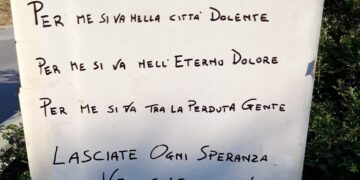 PER ME SI VA NELLA CITTA' DOLENTE
PER ME SI VA NELL'ETERNO DOLORE
PER ME SI VA TRA LA PERDUTA GENTE
LASCIATE OGNI SPERANZA